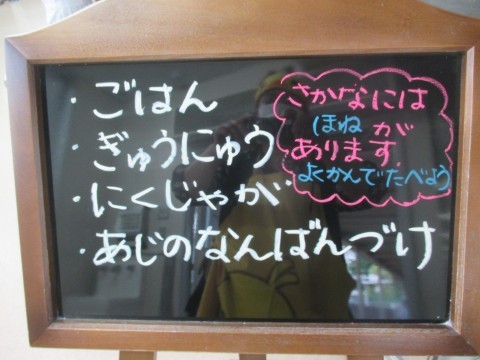 ・ごはん
・ぎゅうにゅう
・にくじゃが
・あじのなんばんづけ
さかなには
ほねが
あります。
よくかんでたべよう